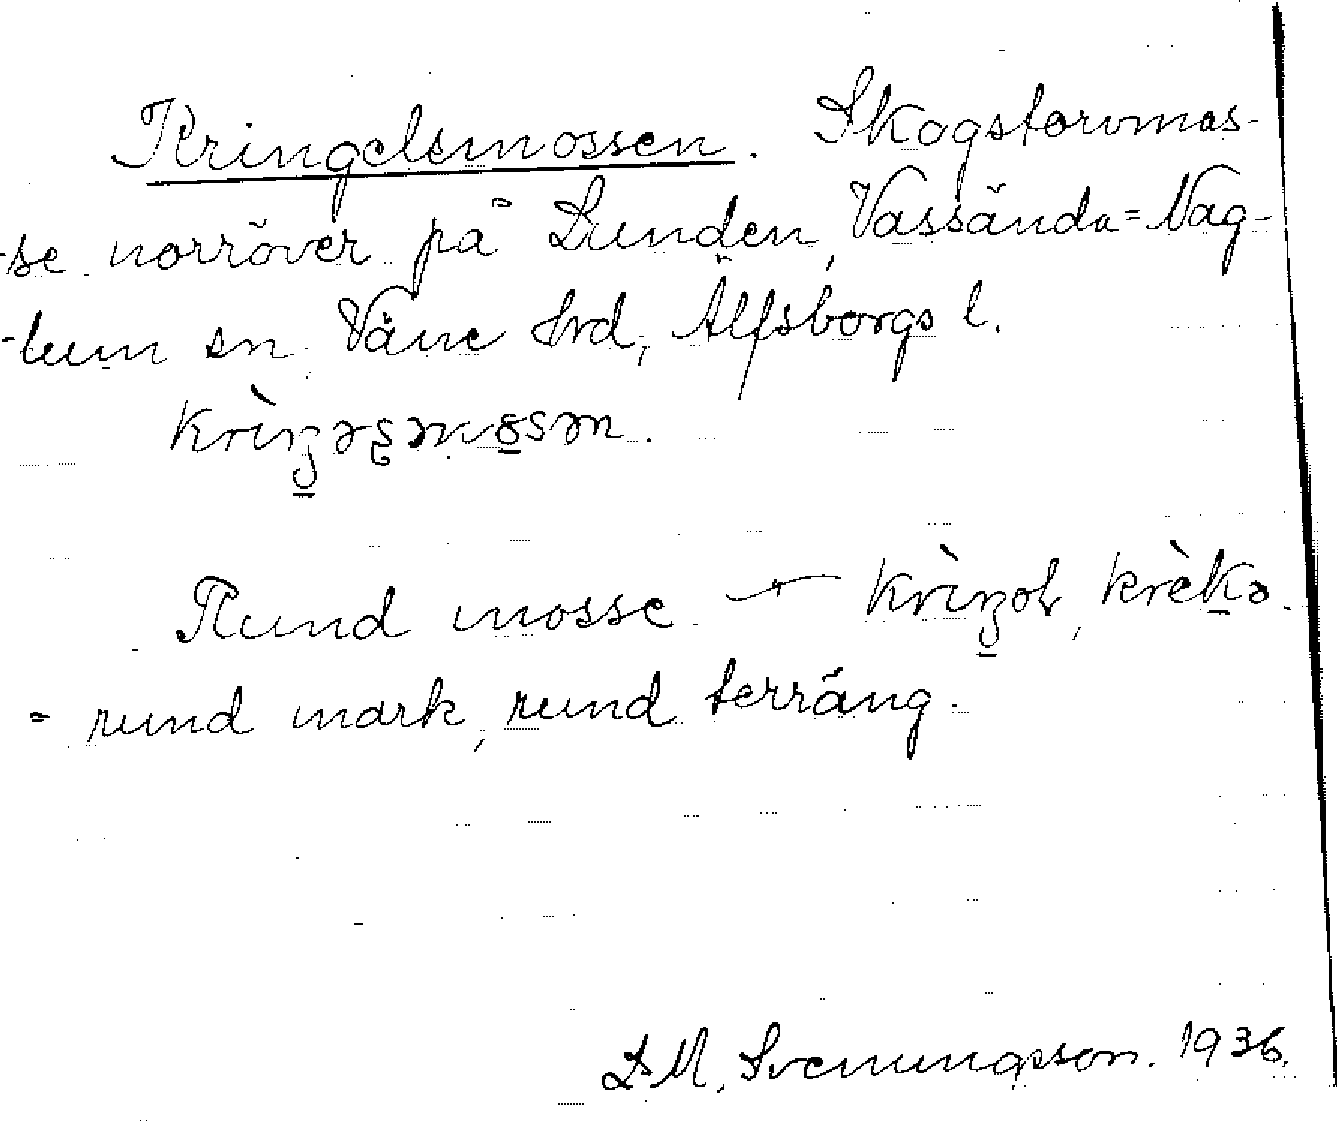 Kringelsmossen. Skogstorvmos-
-se norröver på Lunden, Vassända=Nag-
-lum sn Väne Hrd, Älfsborgs l.
Rund mosse –
= rund mark, rund terräng.
L M. Svenungsson. 1936.